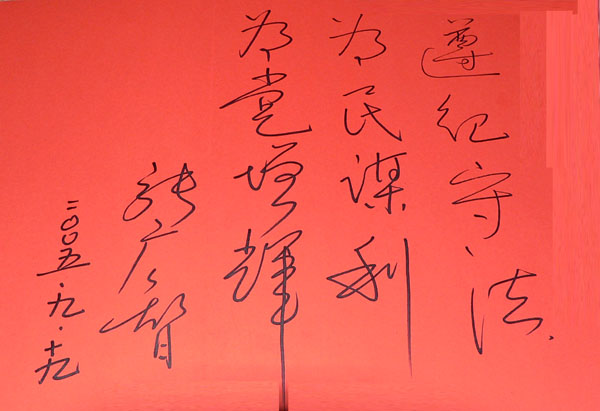 遵纪守法
为民谋利
为党增辉
广智
二〇〇五·九·十九